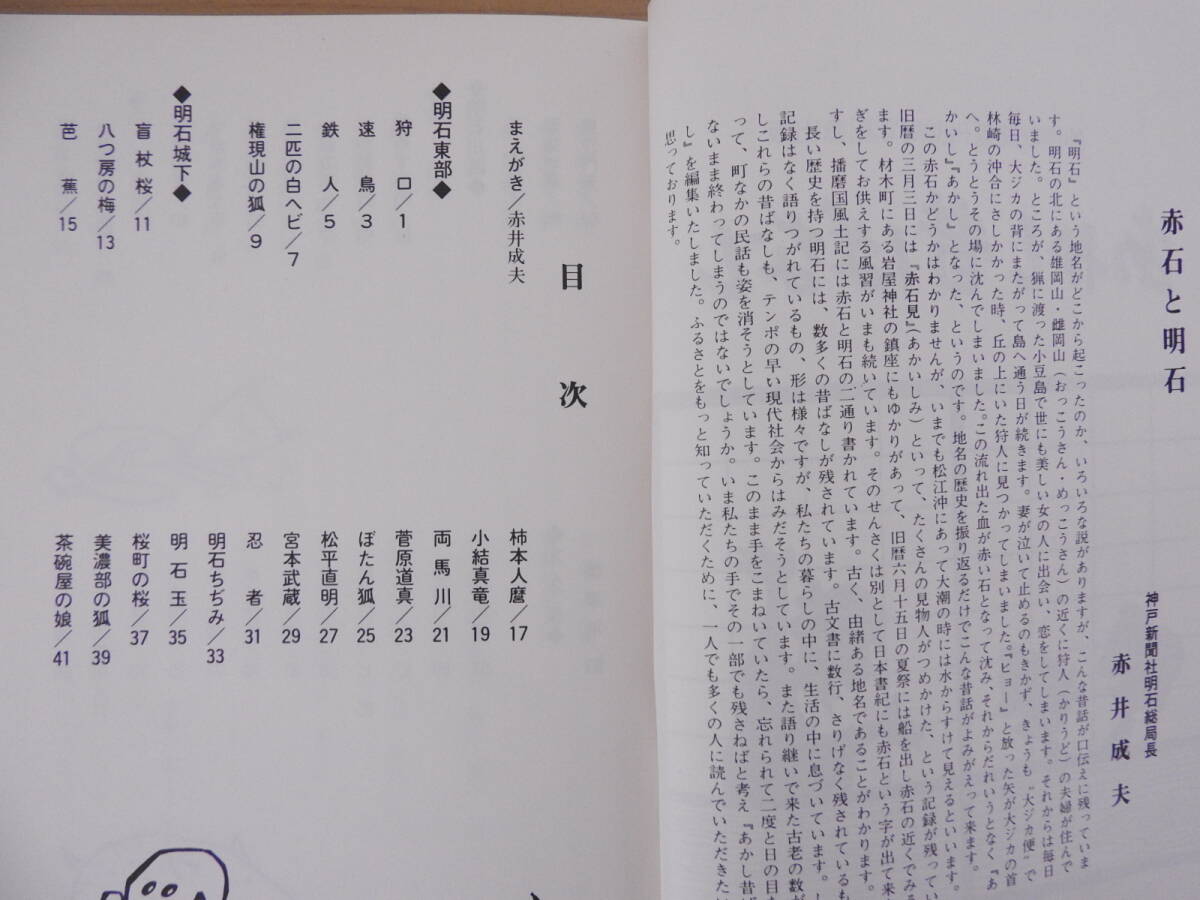 赤石と明石
神戸新聞社明石総局長
赤井成夫
『明石』という地名がどこから起こったのか、いろいろな説がありますが、こんな昔話が口伝えに残っていま
す。明石の北にある雄岡山・雌岡山(おっこうさん・めっこうさん)の近くに狩人(かりうど)の夫婦が住んで
いました。ところが、猟に渡った小豆島で世にも美しい女の人に出会い、恋をしてしまいます。それからは毎日
毎日、大ジカの背にまたがって島へ通う日が続きます。妻が泣いて止めるのもきかず、きょうも“大ジカ便”で
林崎の沖合にさしかかった時、丘の上にいた狩人に見つかってしまいました。『ビョー』と放った矢が大ジカの首
へ。とうとうその場に沈んでしまいました。この流れ出た血が赤い石となって沈み、それからだれいうとなく『あ
かいし』『あかし』となった、というのです。地名の歴史を振り返るだけでこんな昔話がよみがえって来ます。
この赤石かどうかはわかりませんが、いまでも松江沖にあって大潮の時には水からすけて見えるといいます。
旧暦の三月三日には『赤石見』(あかいしみ)といって、たくさんの見物人がつめかけた、という記録が残ってい
ます。材木町にある岩屋神社の鎮座にもゆかりがあって、旧暦六月十五日の夏祭には船を出し赤石の近くでみ
ぎをしてお供えする風習がいまも続いています。そのせんさくは別として日本書紀にも赤石という字が出て来
すし、播磨国風土記には赤石と明石の二通り書かれています。古く、由緒ある地名であることがわかります。
長い歴史を持つ明石には、数多くの昔ばなしが残されています。古文書に数行、さりげなく残されているも
記録はなく語りつがれているもの、形は様々ですが、私たちの暮らしの中に、生活の中に息づいています。
しこれらの昔ばなしも、テンポの早い現代社会からはみだそうとしています。また語り継いで来た古老の数が
って、町なかの民話も姿を消そうとしています。このまま手をこまねいていたら、忘れられて二度と日の目
ないまま終わってしまうのではないでしょうか。いま私たちの手でその一部でも残さねばと考え『あかし昔ば
し』を編集いたしました。ふるさとをもっと知っていただくために、一人でも多くの人に読んでいただきた
思っております。
目次
まえがき/赤井成夫
◆明石東部◆
狩口/1
速鳥/3
鉄人/5
二匹の白ヘビ/7
権現山の狐/9
◆明石城下◆
盲杖桜/11
八つ房の梅/13
芭蕉/15
柿本人麿/17
小結真竜/19
両馬川/21
菅原道真/23
ぼたん狐/25
松平直明/27
宮本武蔵/29
忍者/31
明石ちぢみ/33
明石玉/35
桜町の桜/37
美濃部の狐/39
茶碗屋の娘/41